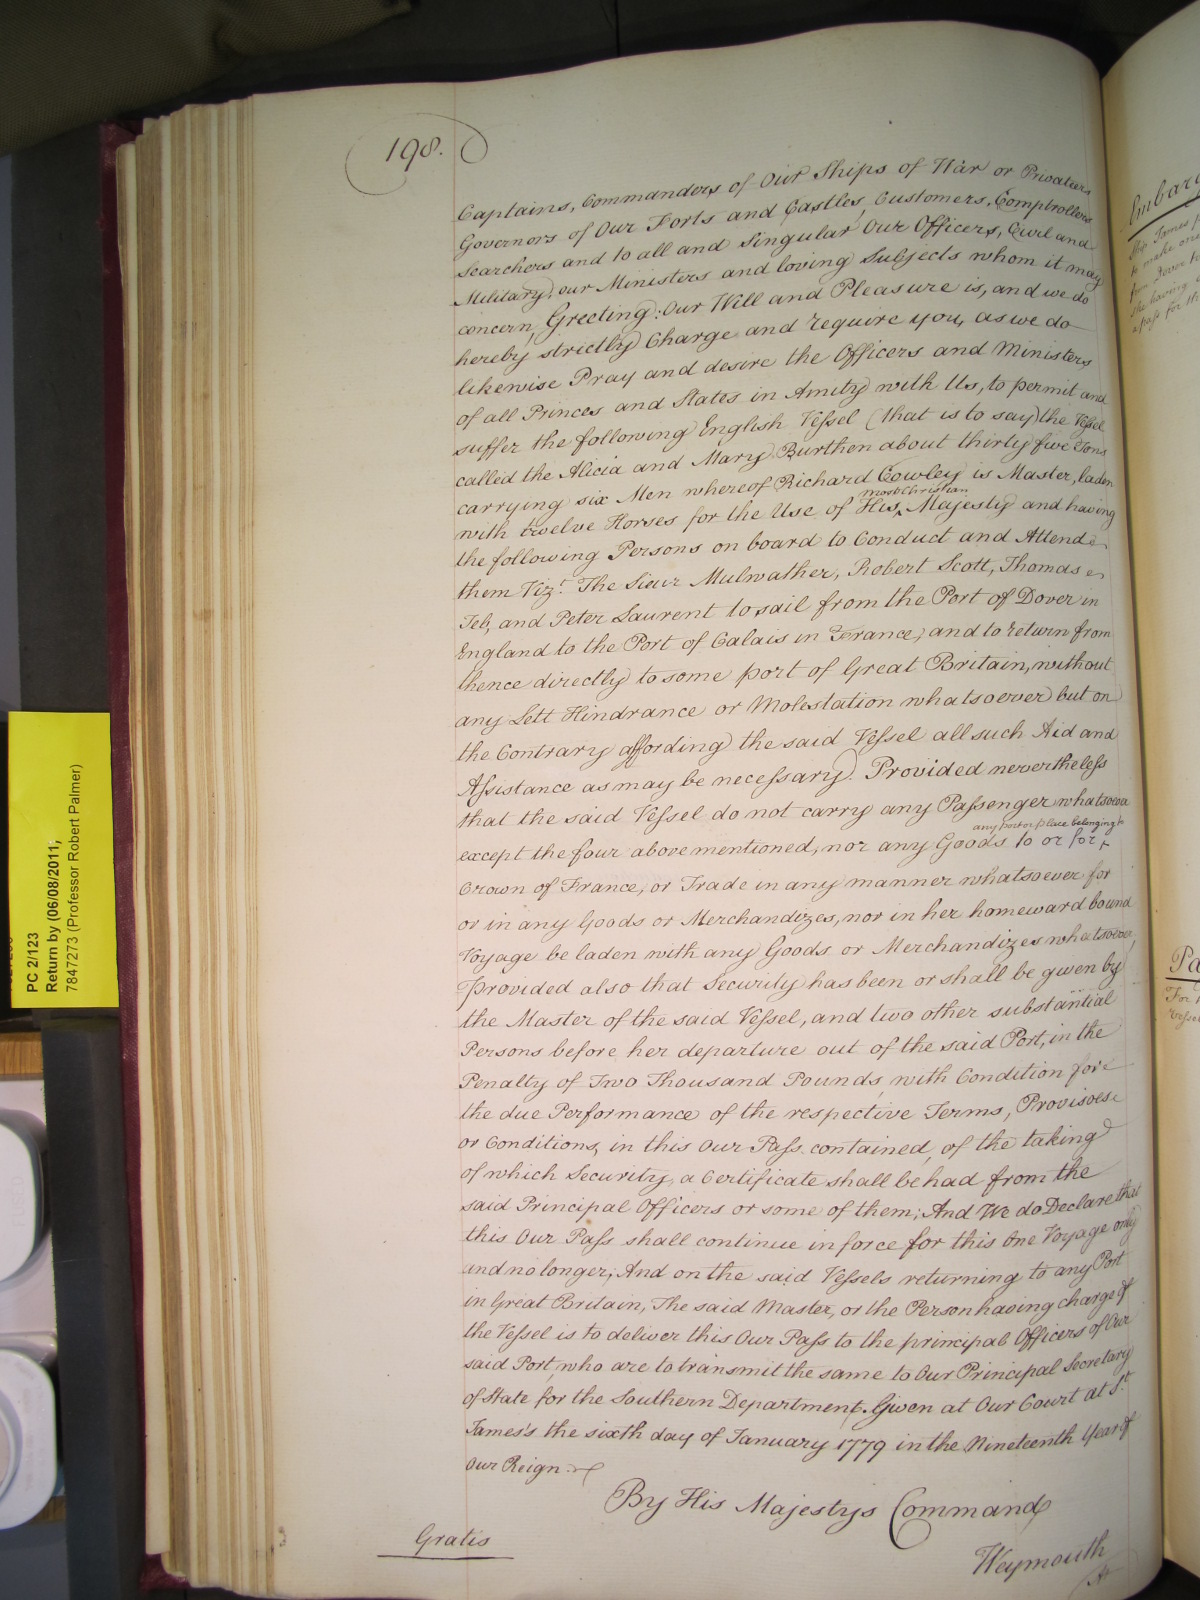 198.
Captains, Commanders of Our Ships of War or Privateers
Governors of Our Forts and Castles, Customers, Comptrollers
Searchers and to all and Singular Our Officers, Civil and
Military, our Ministers and loving Subjects whom it may
concern, Greeting: Our Will and Pleasure is, and we do
hereby strictly Charge and require you, as we do
likewise Pray and desire the Officers and Ministers
of all Princes and States in Amity with Us, to permit and
suffer the following English Vessel (that is to say) the Vessel
called the Alicia and Mary Burthen about thirty five Tons
carrying six Men whereof Richard Cowley is Master, laden
with twelve Horses for the Use of His most Christian Majesty and having
the following Persons on board to Conduct and Attend
them Vizt. The Sieur Mulwather, Robert Scott, Thomas
Feb, and Peter Laurent to sail from the Port of Dover in
England to the Port of Calais in France, and to return from
thence directly to some port of Great Britain, without
any Lett Hindrance or Molestation whatsoever but on
the Contrary affording the said Vessel all such Aid and
Assistance as may be necessary. Provided nevertheless
that the said Vessel do not carry any Passenger whatsoever
except the four abovementioned, nor any Goods to or for any port or place belonging to
Crown of France, or Trade in any manner whatsoever for
or in any Goods or Merchandizes, nor in her homeward bound
Voyage be laden with any Goods or Merchandizes whatsoever,
Provided also that Security has been or shall be given by
the Master of the said Vessel, and two other substantial
Persons before her departure out of the said Port, in the
Penalty of Two Thousand Pounds, with Condition for
the due Performance of the respective Terms, Provisoes
or Conditions, in this Our Pass contained, of the taking
of which Security, a Certificate shall be had from the
said Principal Officers or some of them; And We do Declare that
this Our Pass shall continue in force for this One Voyage only
and no longer; And on the said Vessels returning to any Port
in Great Britain, The said Master, or the Person having charge of
the Vessel is to deliver this Our Pass to the principal Officers of Our
said Port, who are to transmit the same to Our Principal Secretary
of State for the Southern Department. Given at Our Court at St.
James's the sixth day of January 1779 in the Nineteenth Year of
Our Reign.
By His Majestys Command
Gratis
Weymouth
Embarg
Ship James
to make one
from Dover to
She having
a pass for th
Pa
For
Vessel
PC 2/123
Return by (06/08/2011;
7847273 (Professor Robert Palmer)